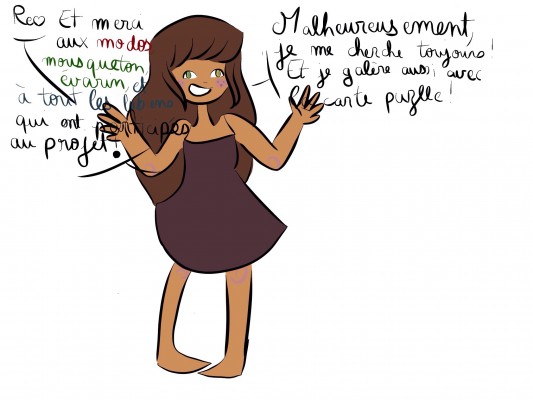 Re♡ Et merci
aux modos
mousqueton
evarun, et
à tout les
qui ont participés
au projet!
Malheureusement,
je me cherche toujours!
Et je galère aussi avec
carte puzzle!